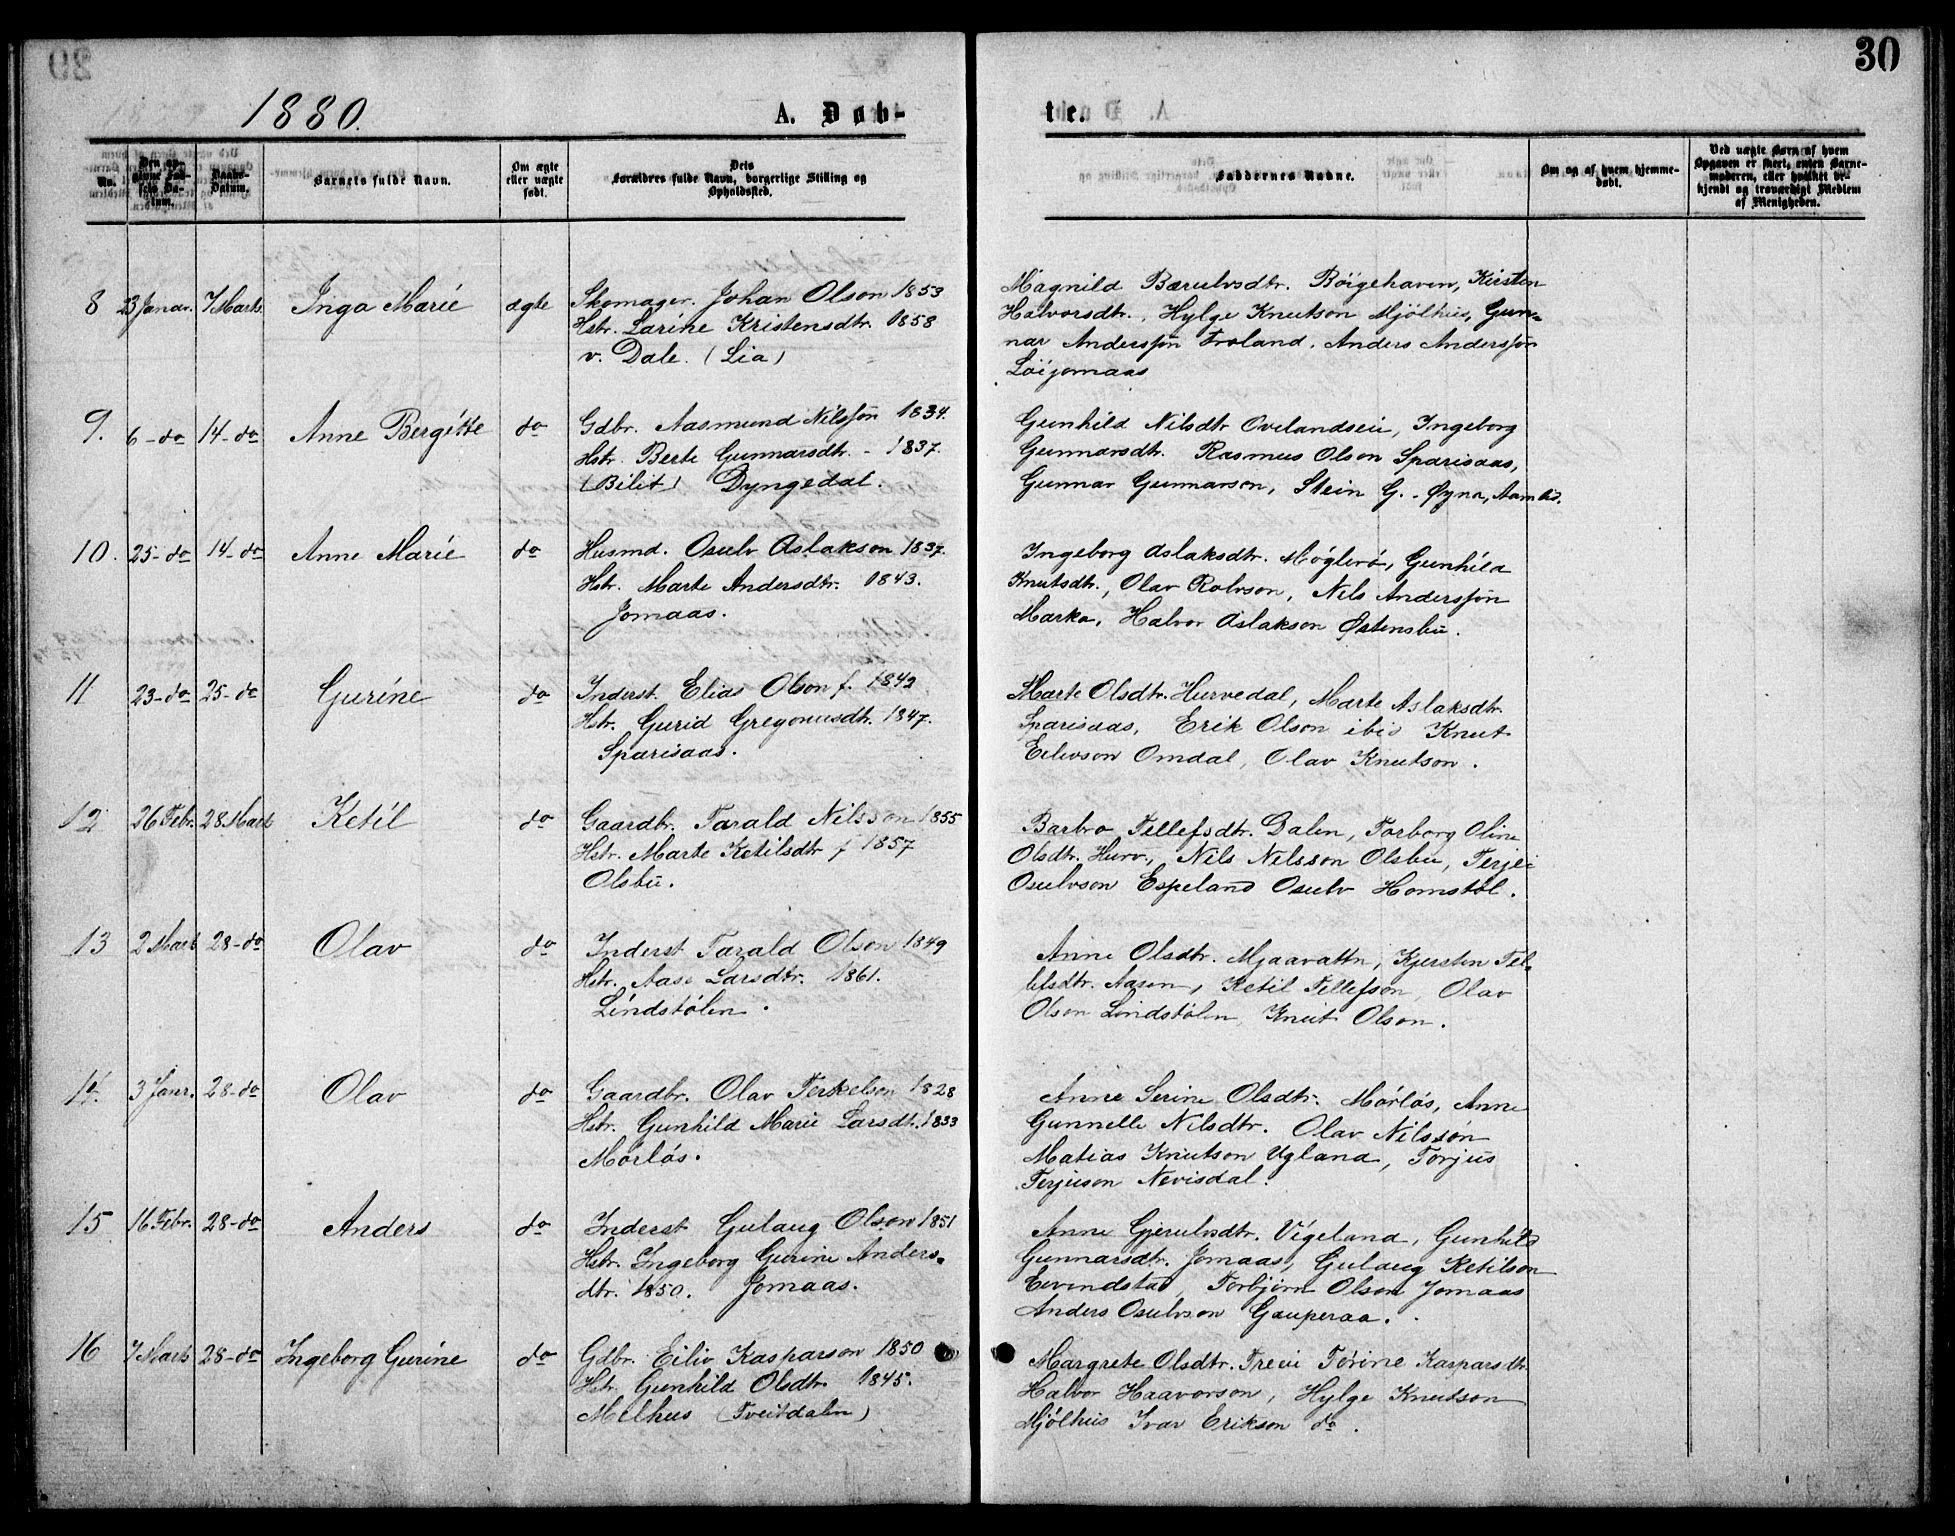 30
1880.
A. Døb-
te.
No.
Den op-
givne Fød-
sels Da-
tum.
Daabs-
Datum.
Barnets fulde Navn.
Om ægte
eller uægte
født.
Dets
Forældres fulde Navn, borgerlige Stilling og
Opholdssted.
Faddernes Navne.
Om og af hvem hjemme-
døbt.
Ved uægte Børn af hvem
Opgaven er skeet, enten Barne-
moderen, eller hvilket be-
kjendt og troværdigt Medlem
af Menigheden.
8 23 Januar. 7 Marts. Inga Marie ægte Skomager. Johan Olson 1853
Hstr. Larine Kristensdtr. 1858
v. Dale. (Lia)
Magnild Bærulvsdtr. Bøigehaven, Kirsten
Halvorsdtr., Hylge Knutson Mjölhus, Gun-
nar Anderssøn Froland, Anders Anderssøn
Löijomaas
9. 6-do 14-do Anne Bergitte do Gdbr. Aasmund Nilssøn 1834.
Hstr. Berte Gunnarsdtr. - 1837.
(Bilit) Dyngedal.
Gunhild Nilsdtr Ovelandseii, Ingeborg
Gunnarsdtr. Rasmus Olson Sparisaas,
Gunnar Gunnarson, Stein G. Øyna, Aamli.
10. 25-do 14-do Anne Marie do Husmd. Osulv Aslakson 1837.
Hstr. Marte Andersdtr. 1843.
Jomaas.
Ingeborg Aslaksdtr. Möglerö, Gunhild
Knutsdtr., Olav Rolvson, Nils Anderssøn
Marka, Halvor Aslakson Østensbu.
11 23-do 25-do Gurine do Inderst. Elias Olson f. 1842
Hstr. Gurid Gregoriusdtr. 1847.
Sparisaas.
Marte Olsdtr. Hurvedal, Marte Aslaksdtr.
Sparisaas, Erik Olson ibid Knut
Eilivson Omdal, Olav Knutson.
12 26 Febr. 28 Mart Ketil do Gaardbr. Tarald Nilsson 1855
Hstr. Marte Ketilsdtr f 1857
Olsbu.
Barbro Tellefsdtr. Dalen, Torborg Oline
Olsdtr. Hurv., Nils Nilsson Olsbu, Terjei
Osulvson Espeland Osulv Homstöl.
13 2 Mart 28-do Olav do Inderst Tarald Olson 1849
Hstr. Aase Larsdtr. 1861.
Lindstölen.
Anne Olsdtr. Mjaavattn, Kjersten Tel-
lefsdtr. Aasen, Ketil Tellefson, Olav
Olson Lindstölen, Knut Olson.
14. 3 Janr. 28-do Olav do Gaardbr. Olav Terkelson 1828
Hstr. Gunhild Marie Larsdtr. 1833
Mörlös.
Anne Serine Olsdtr. Mörlös, Anne
Gunnelle Nilsdtr. Olav Nilssön
Matias Knutson Ugland, Torjus
Terjuson Nevisdal.
15 16 Febr. 28-do Anders do Inderst Gulaug Olson 1851
Hstr. Ingeborg Gurine Anders-
dtr. 1850. Jomaas.
Anne Gjerulvsdtr. Vigeland, Gunhild
Gunnarsdtr. Jomaas, Gulaug Ketilson
Eivindstad, Torbjörn Olson Jomaas
Anders Osulvson Gauperaa.
16 7 Marts 28-do Ingeborg Gurine do Gdbr. Eiliv Kasparson 1850
Hstr. Gunhild Olsdtr. 1845.
Melhus (Tveitdalen)
Margrete Olsdtr. Treii Törine Kasparsdtr.
Halvor Haavorson, Hylge Knutson
Mjölhus Ivar Erikson do.